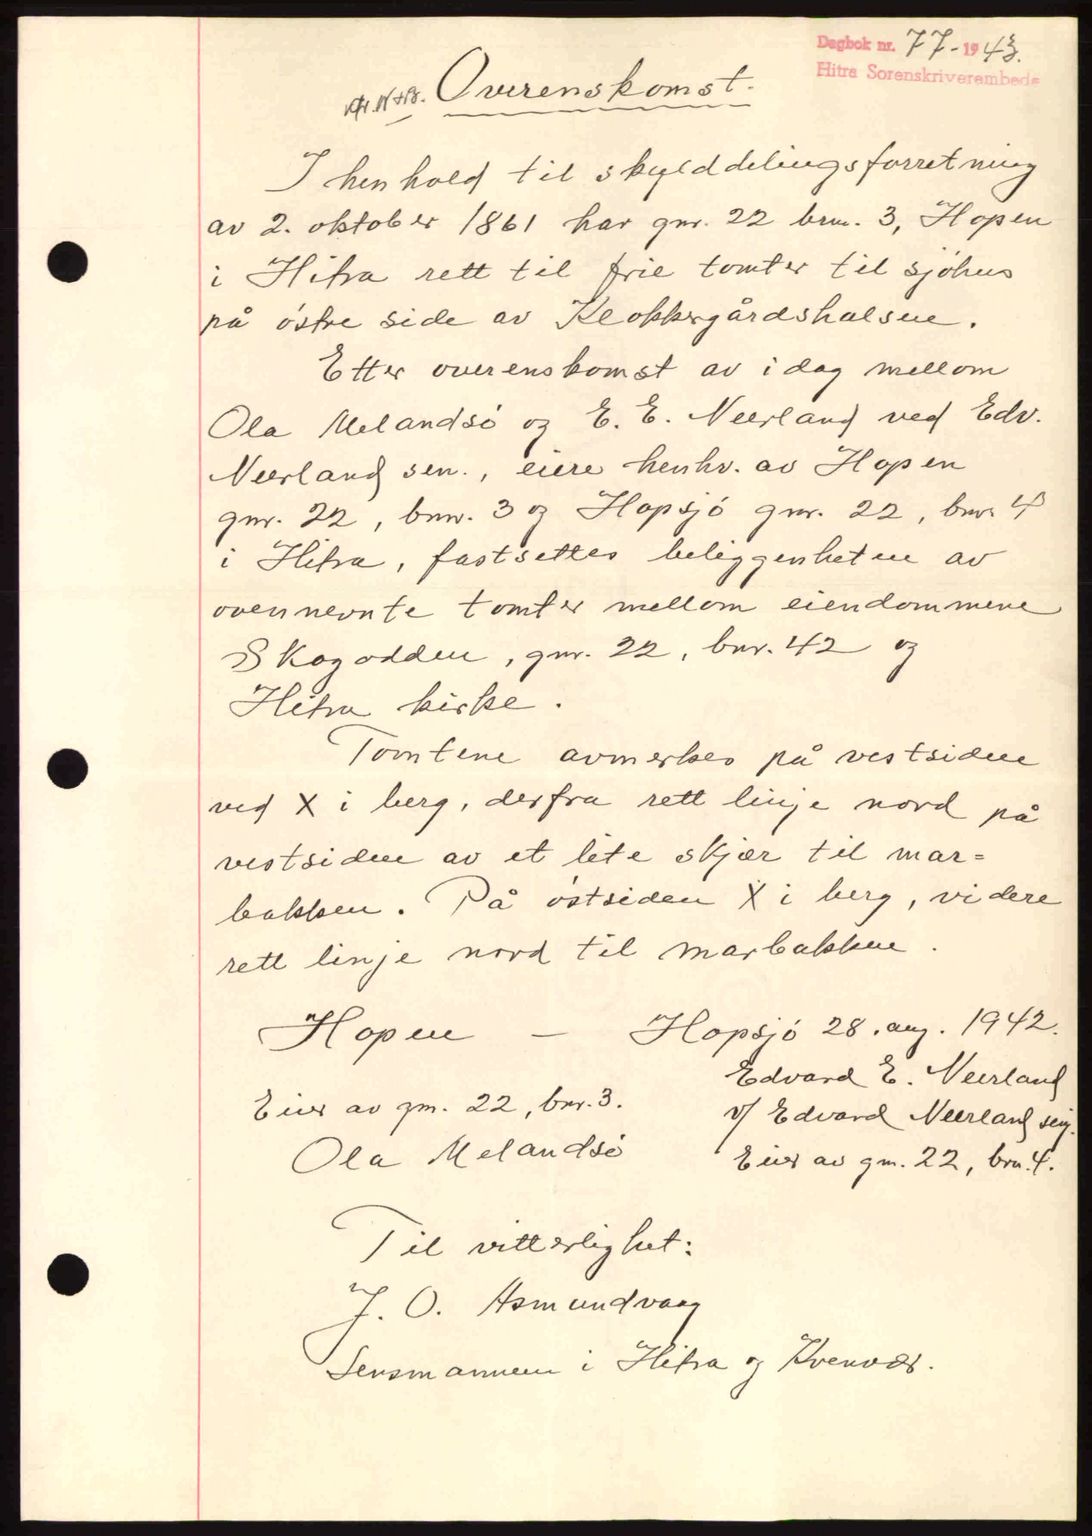 Dagbok nr. 77-1943.
Hitra Sorenskriverembede
Overenskomst.
I henhold til skylddelingsforretning
av 2. oktober 1861 har gnr. 22 brn. 3, Hopen
i Hitra rett til frie tomter til sjöhus
på östre side av Klokkergårdshalsen.
Etter overenskomst av idag mellom
Ola Melandsö og E. E. Neerland ved Edv.
Neerland sen., eiere henhv. av Hopen
gnr. 22, bnr. 3 og Hopsjö gnr. 22, bnr. 4
i Hitra, fastsettes beliggenheten av
ovennevnte tomter mellom eiendommene
Skogodden, gnr. 22, bnr. 42 og
Hitra kirke.
Tomtene avmerkes på vestsiden
ved X i berg, derfra rett linje nord på
vestsiden av et lite skjær til mar=
bakken. På östsiden X i berg, videre
rett linje nord til marbakken.
Hopen — Hopsjö 28. aug. 1942.
Edvard E. Neerland
Eier av gn. 22, bnr. 3.
v/ Edvard Neerland sen.
Ola Melandsö
Eier av gn. 22, brn. 4.
Til vitterlighet:
J. O. Asmundvaag
Lensmannen i Hitra og Kvenvær.